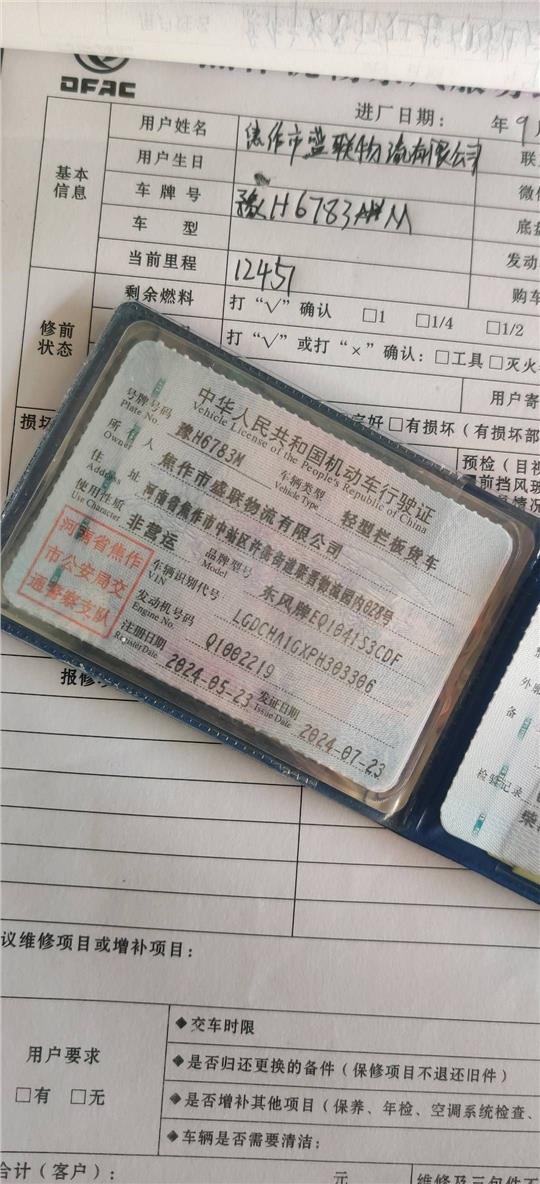 DFAC
进厂日期： 年9月
基本信息
用户姓名 焦作市盛联物流有限公司
用户生日
车牌号 豫H6783M
车型
当前里程 12451
修前状态
剩余燃料 打“√”确认 □1 □1/4 □1/2
打“√”或打“×”确认：□工具 □灭火
用户寄
损坏 完好 □有损坏（有损坏部
预检（目视
前挡风玻
中华人民共和国机动车行驶证
Vehicle License of the People's Republic of China
号牌号码 Plate No. 豫H6783M 车辆类型 Vehicle Type 轻型栏板货车
所有人 Owner 焦作市盛联物流有限公司
住址 Address 河南省焦作市中站区许衡街道联晋物流园内028号
使用性质 Use Character 非营运 品牌型号 Model 东风牌EQ1041S3CDF
车辆识别代号 VIN LGDCHA1GXPH303306
发动机号码 Engine No. Q1002219
注册日期 Register Date 2024-05-23 发证日期 Issue Date 2024-07-23
河南省焦作
市公安局交
通警察支队
外廓
备
检验记录
报修项
议维修项目或增补项目：
用户要求
□有 □无
◆交车时限
◆是否归还更换的备件（保修项目不退还旧件）
◆是否增补其他项目（保养、年检、空调系统检查、
◆车辆是否需要清洁：
合计（客户）： 元 维修及三包件不